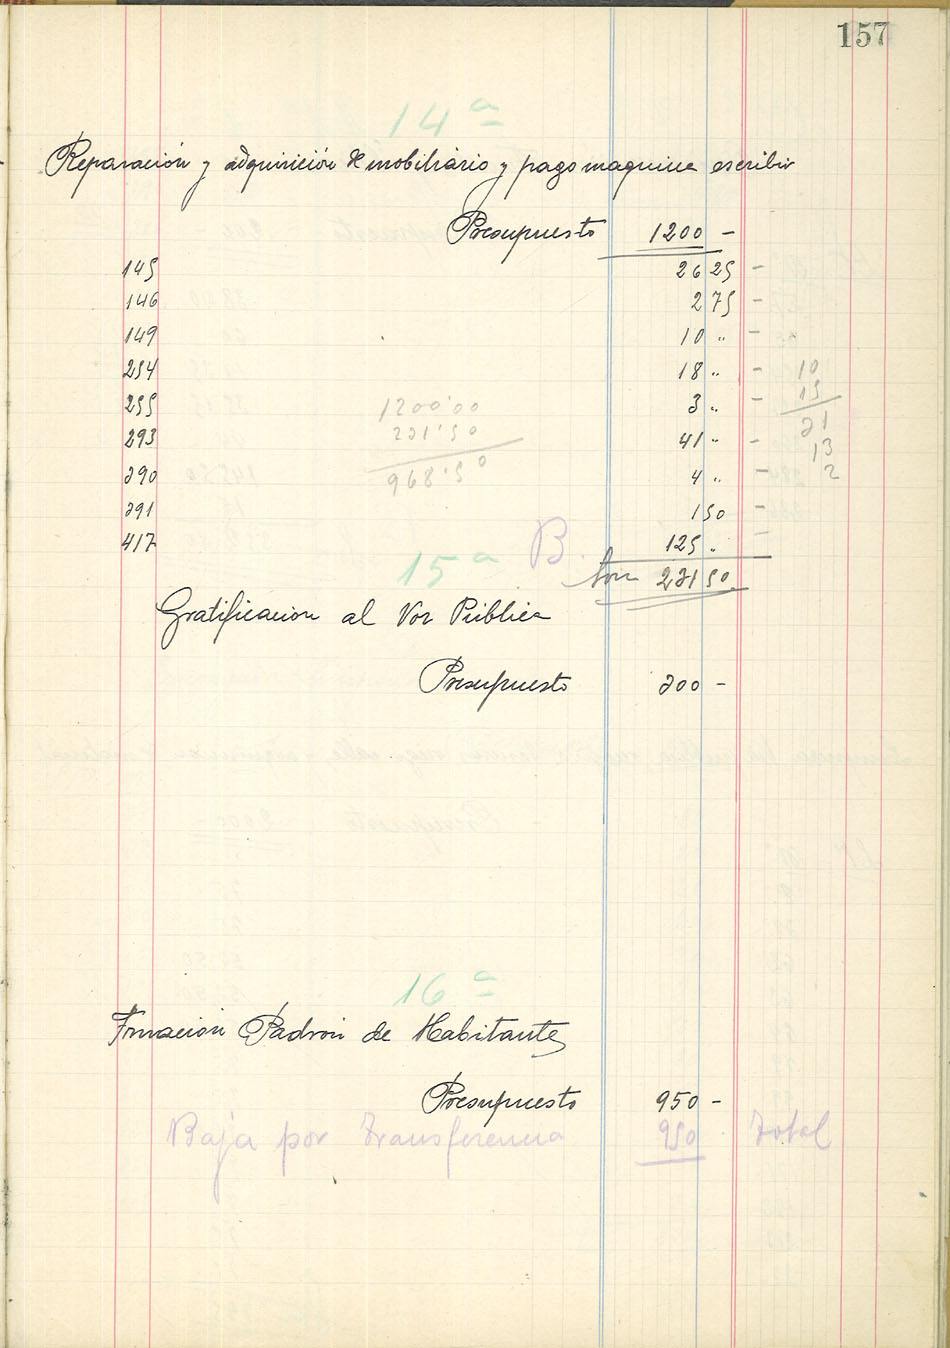 157
14ª
Reparación y adquisición de mobiliario y pago maquina escribir
Presupuesto 1200 -
145 26 25 -
146 2 75 -
149 10 " -
254 18 " - 10
255 3 " - 15
1200'00 21
293 41 " - 13
231'50
290 4 " - 2
968'50
291 1 50 -
417 125 "
15ª B.
231 50
Gratificacion al Voz Pública
Presupuesto 200 -
16ª
Formación Padrón de Habitantes
Presupuesto 950 -
Baja por transferencia 950 total